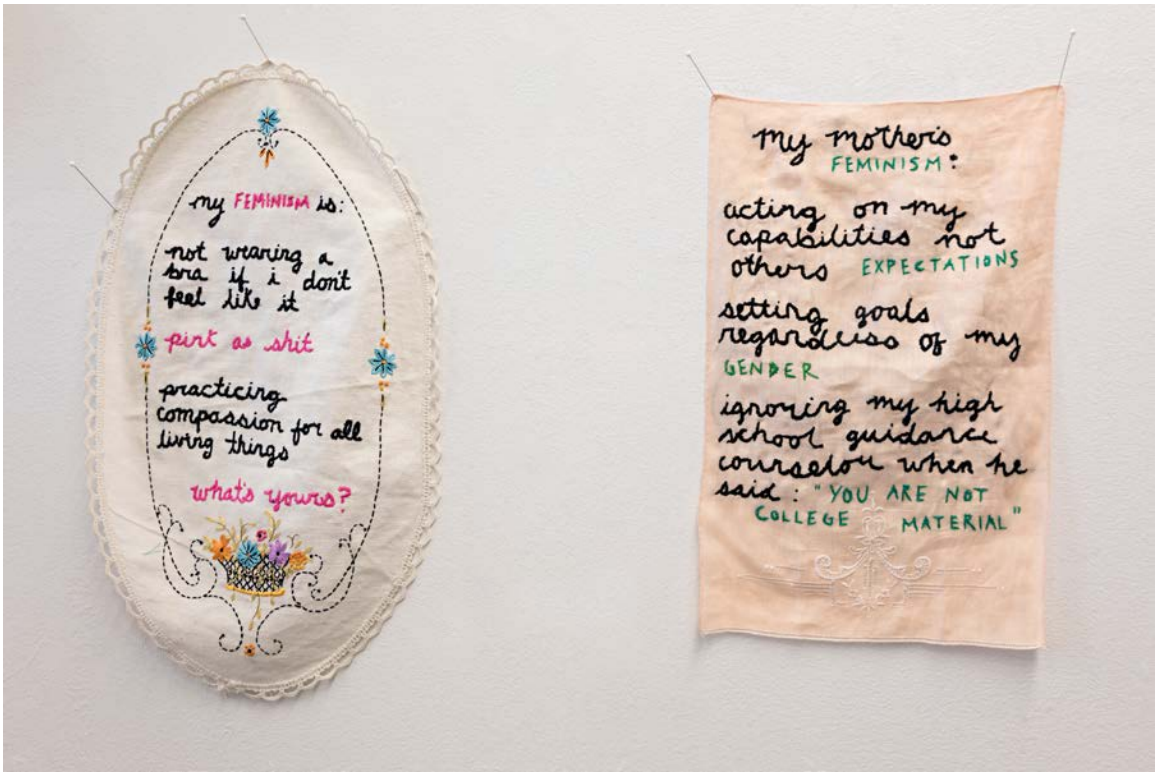 my FEMINISM is:
not wearing a
bra if i don't
feel like it
pink as shit
practicing
compassion for all
living things
what's yours?
my mother's
FEMINISM:
acting on my
capabilities not
others EXPECTATIONS
setting goals
regardless of my
GENDER
ignoring my high
school guidance
counselor when he
said: "YOU ARE NOT
COLLEGE MATERIAL"